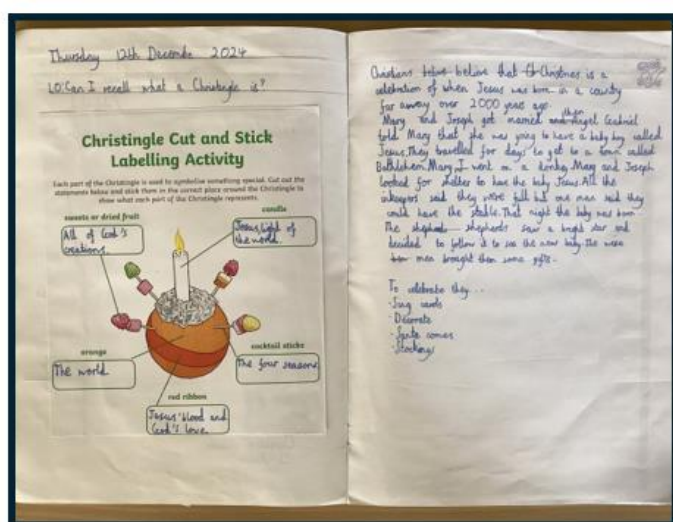 Thursday 12th Decembe 2024
LO:Can I recall what a Christingle is?
Christingle Cut and Stick
Labelling Activity
Each part of the Christingle is used to symbolise something special. Cut out the
statements below and stick them in the correct place around the Christingle to
show what each part of the Christingle represents.
sweets or dried fruit
All of God's
creations.
candle
Jesus, light of
the world.
orange
The world
cocktail sticks
The four seasons
red ribbon
Jesus' blood and
God's love.
Christians believe that Christmas is a
celebration of when Jesus was born in a county
far away over 2000 years ago.
Mary and Joseph got married then Angel Gabriel
told Mary that she was going to have a baby boy called
Jesus. They travelled for days to get to a town called
Bethlehem. Mary went on a donkey. Mary and Joseph
looked for shelter to have the baby Jesus. All the
inkeepers said they were full but one man said they
could have the stable. That night the baby was born
The shepherds saw a bright star and
decided to follow it to see the new baby. the
men brought them some gifts.
To celebrate they...
· Sing carols
· Decorate
· Santa comes
· Stockings